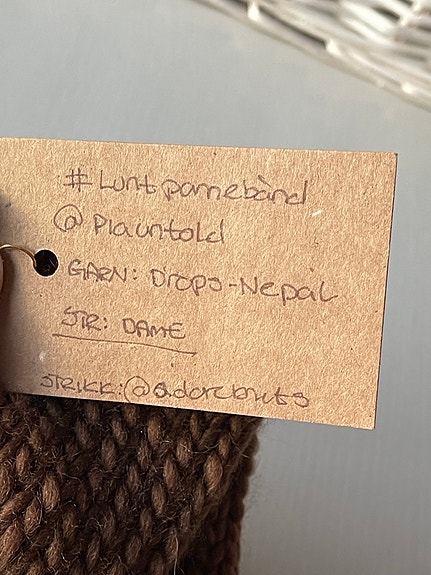 #Luntpannebånd
@Plauntold
GARN: Drops-Nepal
STR: DAME
STRIKK: